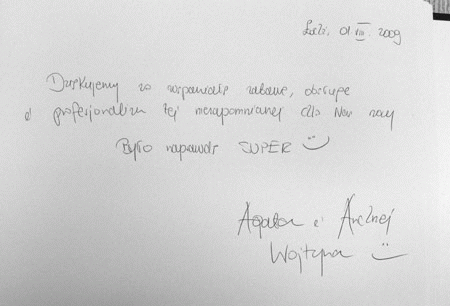 Łódź, 01.VIII.2009
Dziękujemy za wspaniałą zabawę, obsługę
i profesjonalizm tej niezapomnianej dla Nas nocy
Było naprawdę SUPER
Agata i Andrzej
Wojtyna